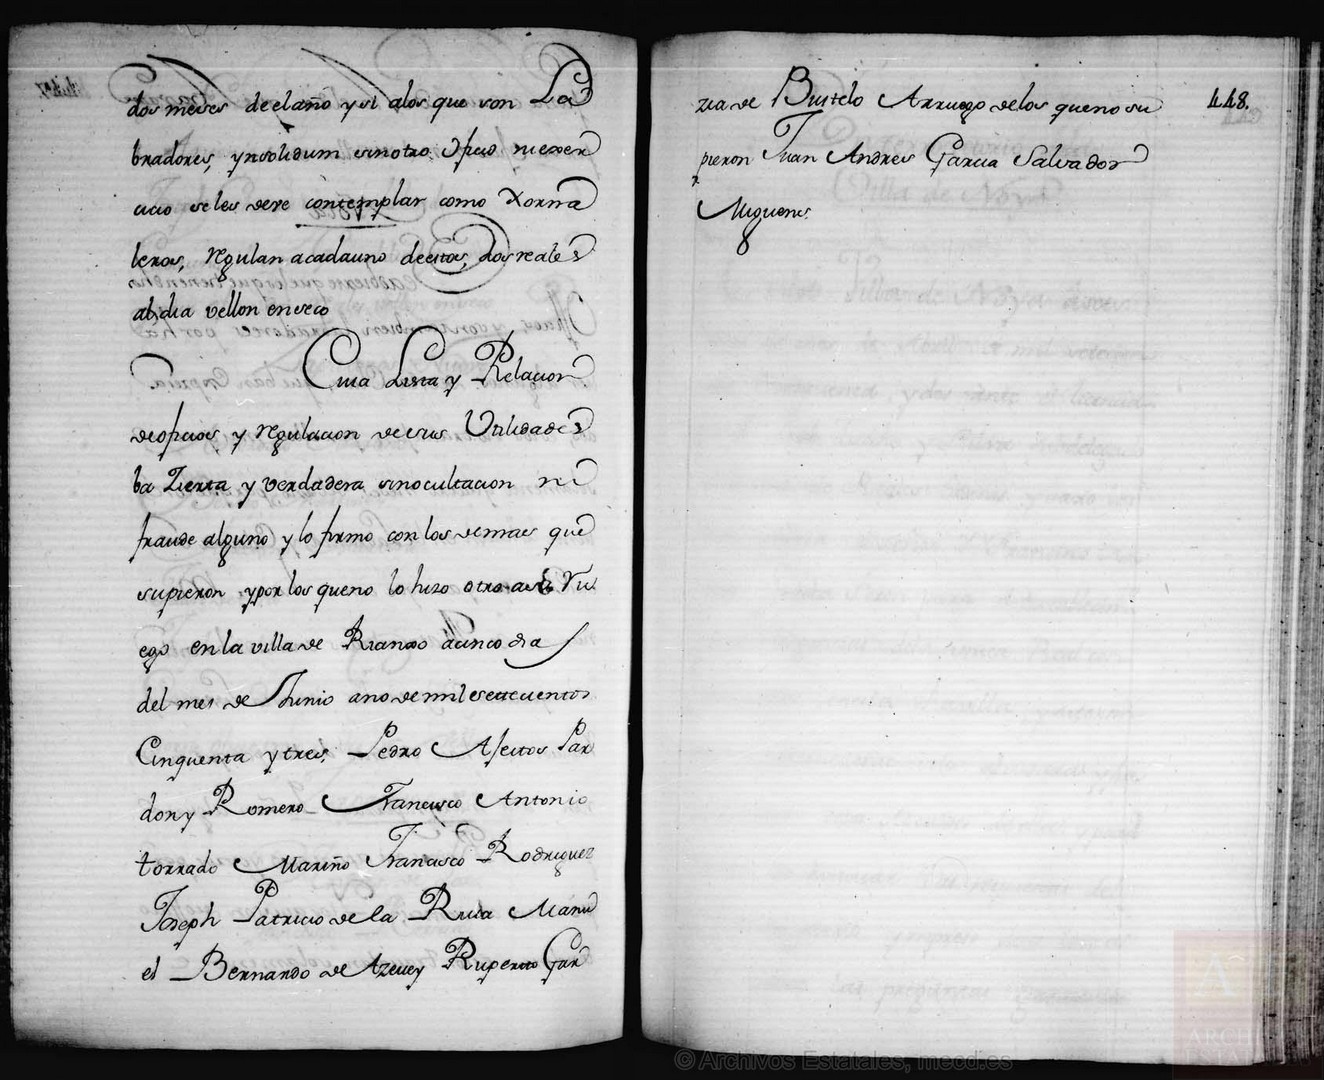 dos meses de el año y si alos que son La
bradores, ynsolidum sinotro Oficio niexer
cicio seles deve contemplar como Xorna
leros, regulan acadauno deestos, dos reales
al dia vellon enseco
Cuia Lista y Relacion
deoficios y regulacion desus Utilidades
ba Zierta y verdadera sinocultacion ni
fraude alguno y lo firmo con los demas que
supieron ypor los queno lo hizo otro asu Ru
ego en la villa de Rianxo acinco dia
del mes de Junio ano de mil settecientos
Cinquenta y tres, Pedro Afectos Par
don y Romero Francisco Antonio
torrado Mariño Francisco Rodriguez
Joseph Patricio de la Rua Manu
el Bernardo de Azevey Ruperto Gar
zia de Bustelo Arruego delos queno su
pieron Juan Andres Garcia Salvador
Miguens
448.
© Archivos Estatales, mecd.es